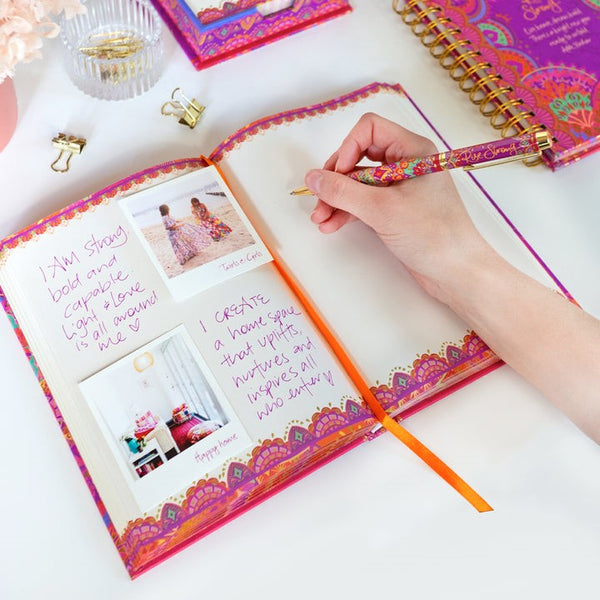 I AM strong
bold and
capable.
Light & Love
is all around
me ♡
Twirls & Curls
I CREATE
a home space
that uplifts,
nurtures and
inspires all
who enter ♡
Happy home
Rise Strong